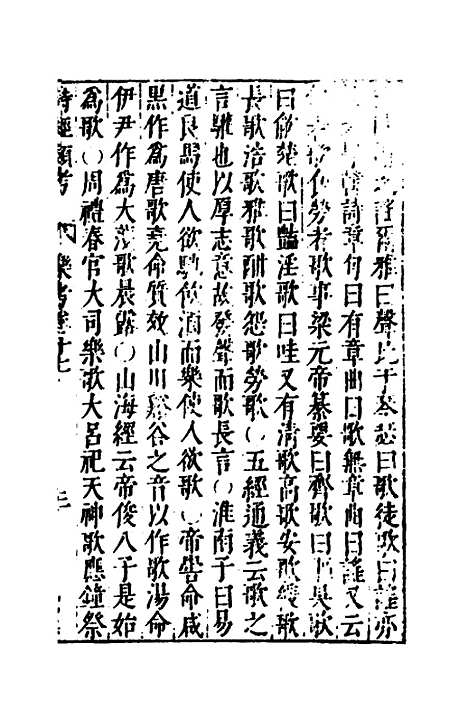 謂爾雅曰聲比于琴瑟曰歌徒歌曰謠亦
韓詩章句曰有章曲曰歌無章曲曰謠又云
者歌食勞者歌事梁元帝纂要曰齊歌曰吳歌
曰歈楚歌曰豔淫歌曰哇又有清歌高歌安歌緩歌
長歌浩歌雅歌酣歌怨歌勞歌○五經通義云歌之
言驩也以厚志意故發聲而歌長言○淮南子曰易
道良馬使人欲馳飲酒而樂使人欲歌○帝嚳命咸
黑作爲唐歌堯命質效山川谿谷之音以作歌湯命
伊尹作爲大濩歌晨露○山海經云帝俊八子是始
爲歌○周禮春官大司樂歌大呂祀天神歌應鐘祭
詩經類考 樂考卷十七